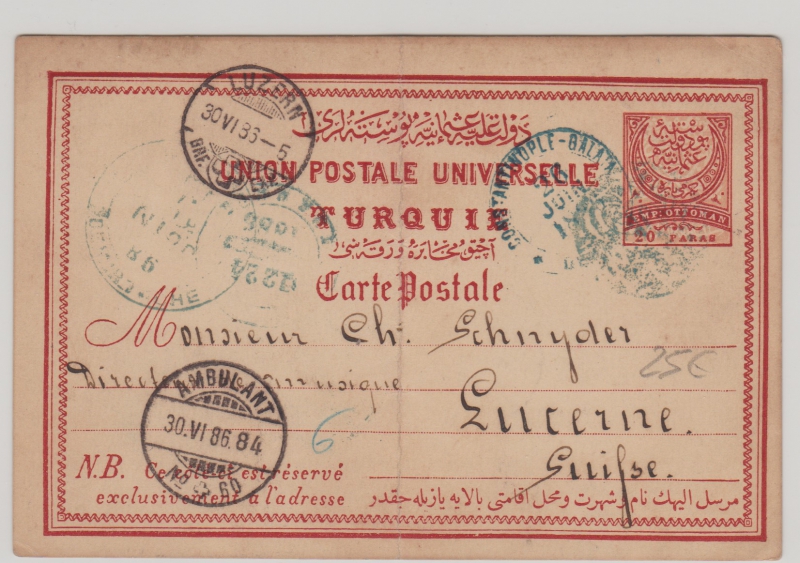 دولت عليهٔ عثمانيه پوسته لرى
UNION POSTALE UNIVERSELLE
TURQUIE
آچيق مخابره ورقه سى
Carte Postale
EMP: OTTOMAN
20 PARAS
LUZERN
30 VI 86-5
BRF.
CONSTANTINOPLE-GALATA
Monsieur Ch. Schnyder
Directeur musique
Lucerne.
Suisse.
25€
6
AMBULANT
30.VI 86.84
N.B. Ce côté est réservé
exclusivement à l'adresse
مرسل اليهك نام و شهرت و محل اقامتى بالايه يازيله جقدر